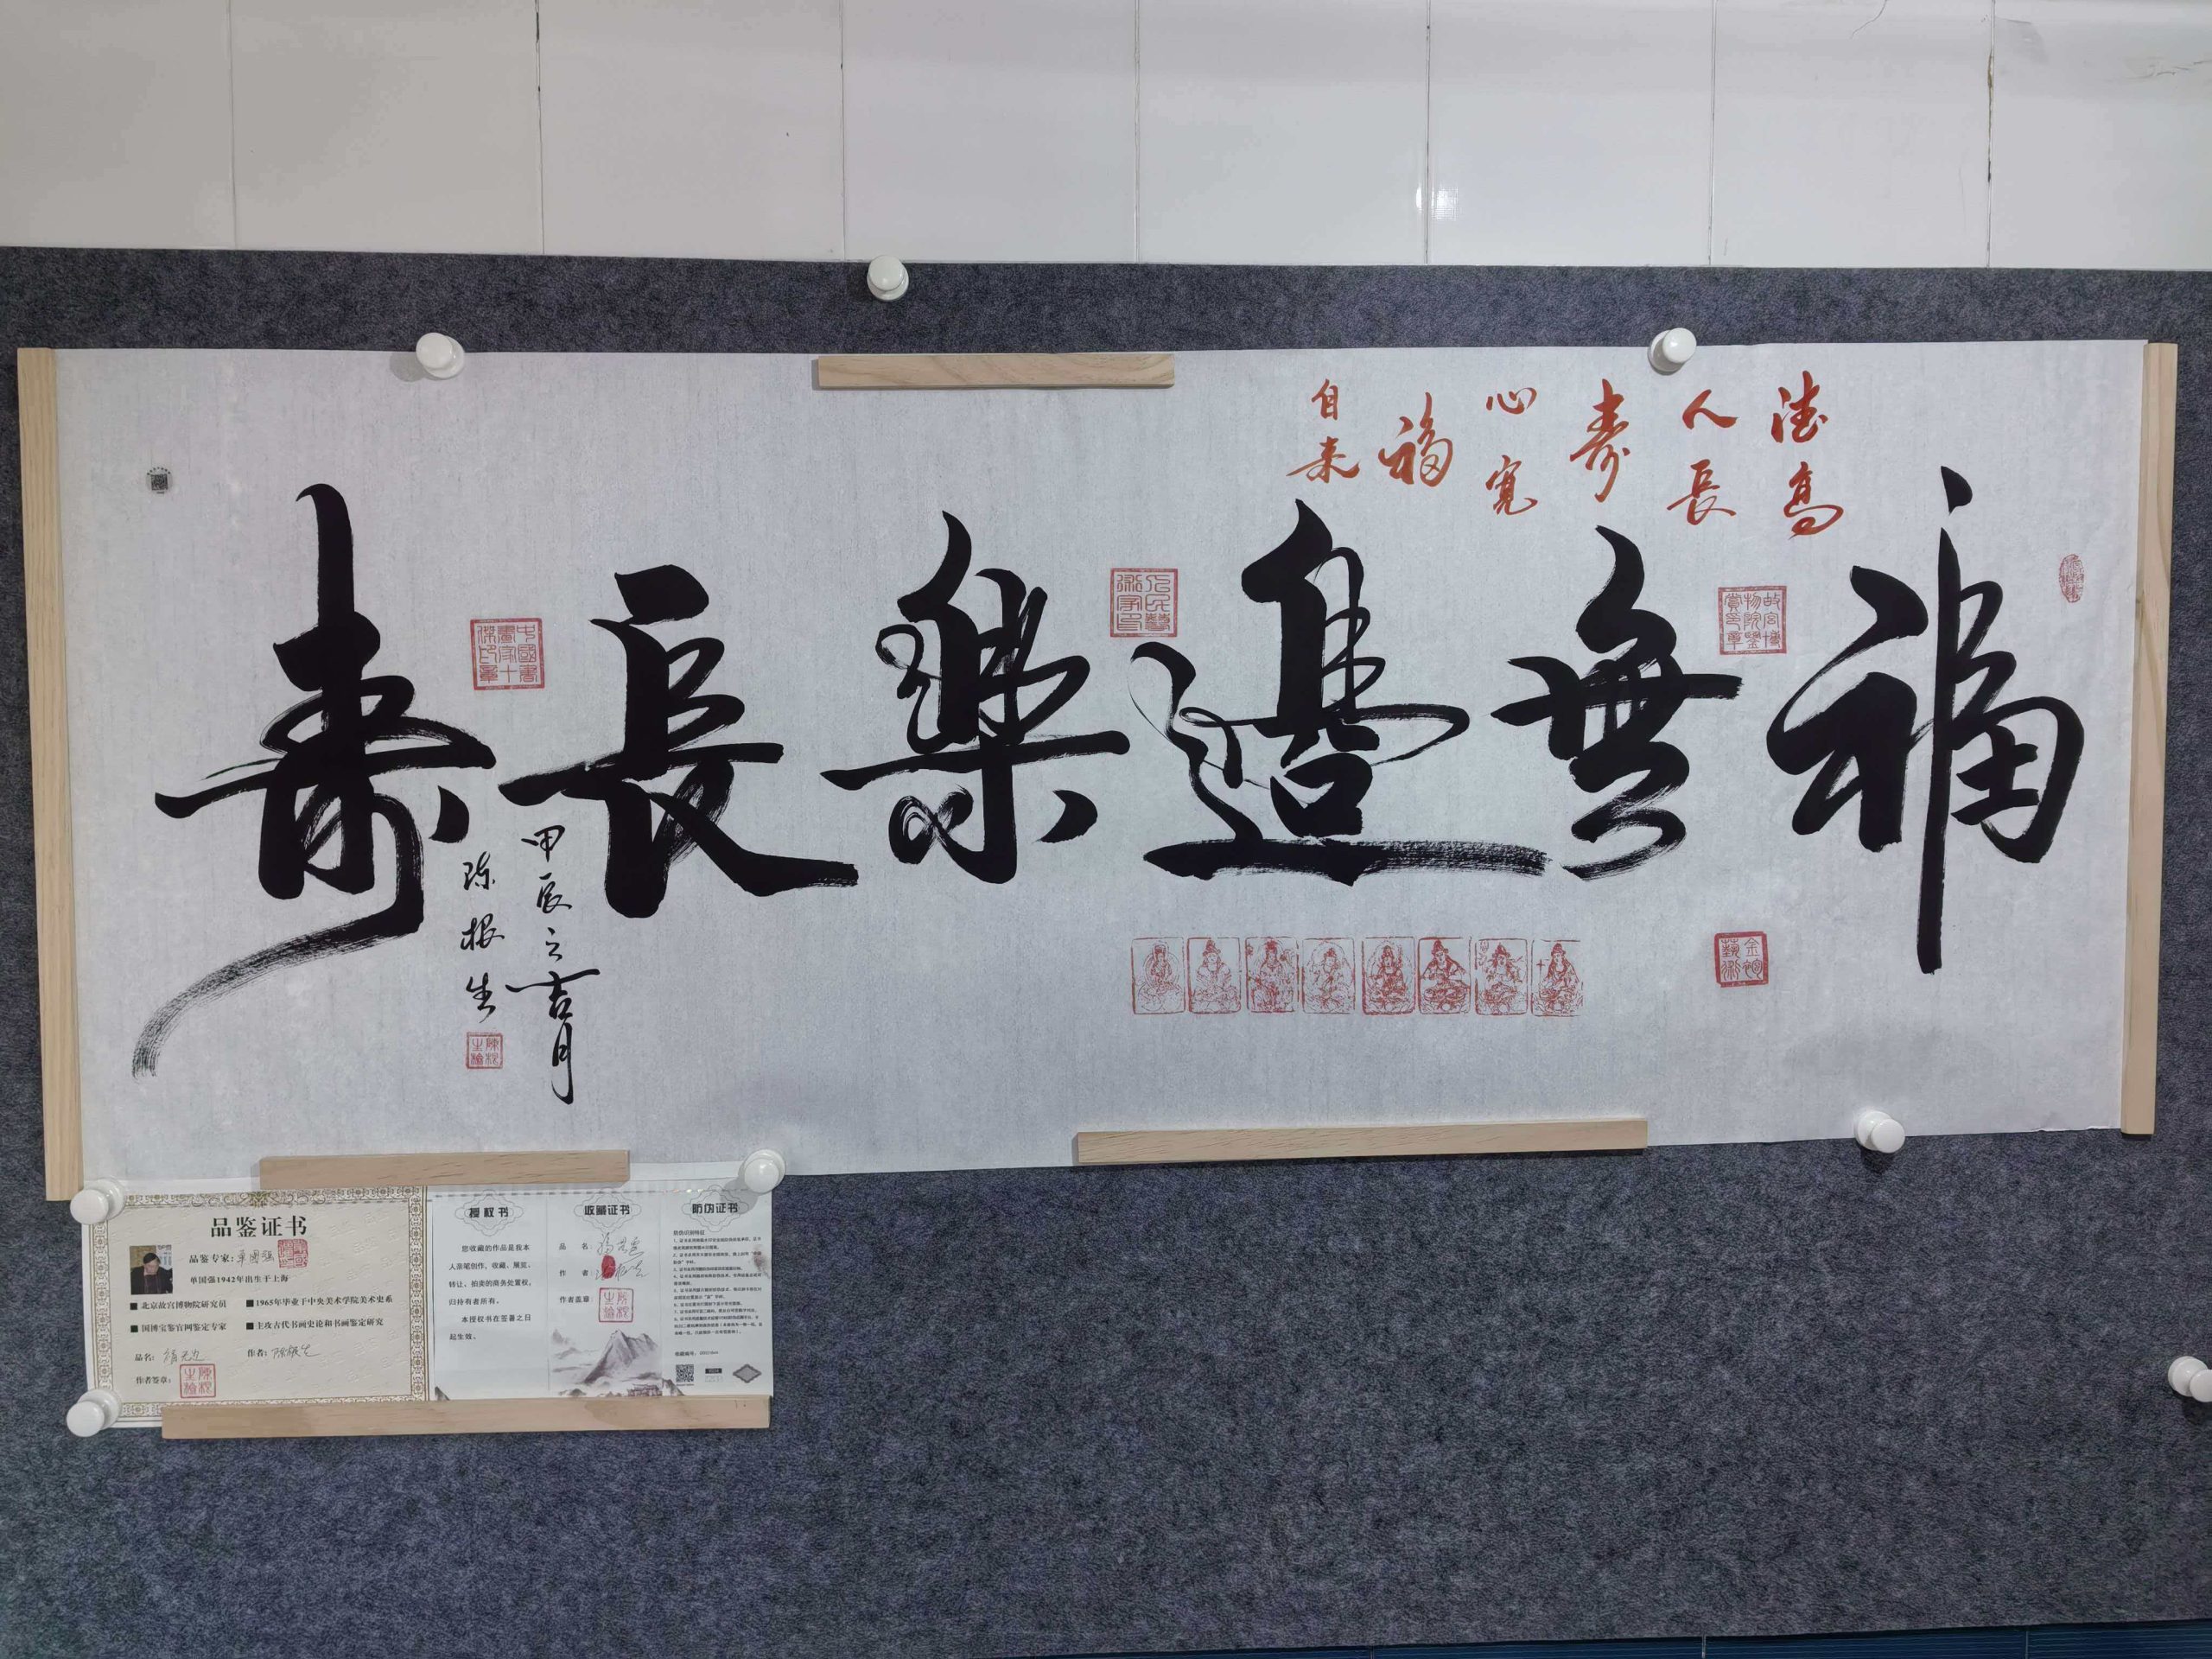 福無邊樂長壽
德高
人長
壽
心寬
福
自来
甲辰之吉月
陈根生
故宫博物院鑒賞印章
人民藝術家印
中國書畫家十傑印章
陳根生印
品鉴证书
品鉴专家：单国强
单国强1942年出生于上海
■ 北京故宫博物院研究员
■ 1965年毕业于中央美术学院美术史系
■ 国博宝鉴官网鉴定专家
■ 主攻古代书画史论和书画鉴定研究
品名：福无边
作者：陈根生
作者签章：
授权书
您收藏的作品是我本
人亲笔创作，收藏、展览、
转让、拍卖的商务处置权，
归持有者所有。
本授权书在签署之日
起生效。
收藏证书
品 名：福无边
作 者：陈根生
作者盖章：
防伪证书
防伪识别特征